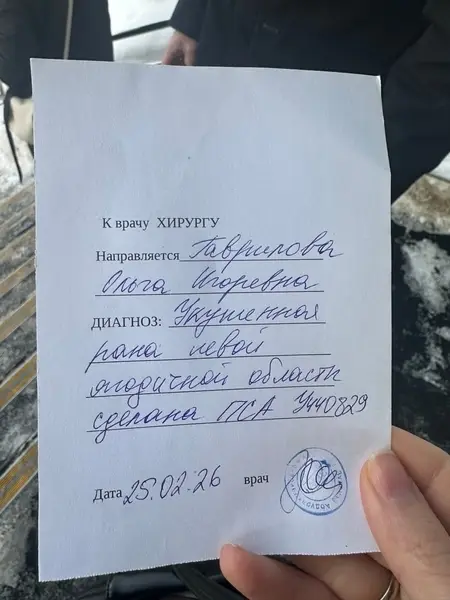 К врачу ХИРУРГУ
Направляется Гаврилова
Ольга Игоревна
ДИАГНОЗ: Укушенная
рана левой
ягодичной области
сделана ПСА У440829
Дата 25.02.26 врач